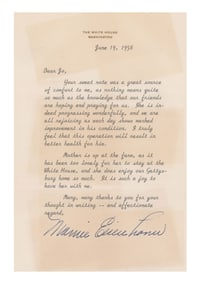 THE WHITE HOUSE
WASHINGTON
June 19, 1956
Dear Jo,
Your sweet note was a great source
of comfort to me, as nothing means quite
so much as the knowledge that our friends
are hoping and praying for us. Ike is in-
deed progressing wonderfully, and we are
all rejoicing as each day shows marked
improvement in his condition. I truly
feel that this operation will result in
better health for him.
Mother is up at the farm, as it has
been too lonely for her to stay at the
White House, and she does enjoy our Gettys-
burg home so much. It is such a joy to
have her with me.
Many, many thanks to you for your
thought in writing -- and affectionate
regard,
Mamie Eisenhower